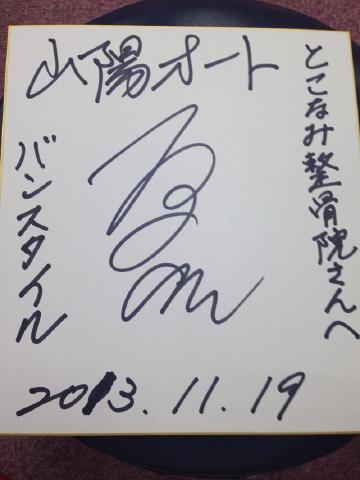 とこなみ整骨院さんへ
山陽オート
バンスタイル
2013.11.19